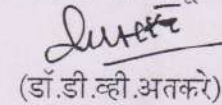 (डॉ.डी.व्ही.अतकरे)